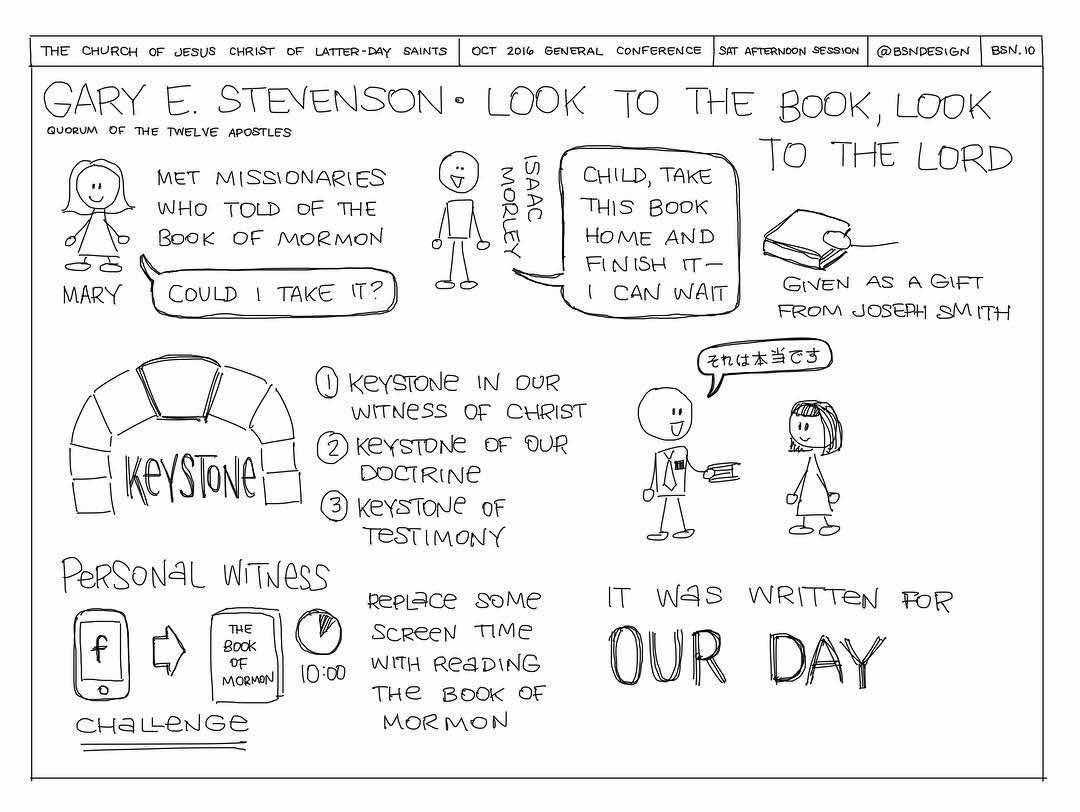 THE CHURCH OF JESUS CHRIST OF LATTER-DAY SAINTS
OCT 2016 GENERAL CONFERENCE
SAT AFTERNOON SESSION
@BSNDESIGN
BSN.10
GARY E. STEVENSON • LOOK TO THE BOOK, LOOK
TO THE LORD
QUORUM OF THE TWELVE APOSTLES
MET MISSIONARIES
WHO TOLD OF THE
BOOK OF MORMON
COULD I TAKE IT?
MARY
ISAAC
MORLEY
CHILD, TAKE
THIS BOOK
HOME AND
FINISH IT—
I CAN WAIT
GIVEN AS A GIFT
FROM JOSEPH SMITH
KEYSTONE
1 KEYSTONE IN OUR
WITNESS OF CHRIST
2 KEYSTONE OF OUR
DOCTRINE
3 KEYSTONE OF
TESTIMONY
それは本当です
PERSONAL WITNESS
f
THE
BOOK
OF
MORMON
10:00
CHALLENGE
REPLACE SOME
SCREEN TIME
WITH READING
THE BOOK OF
MORMON
IT WAS WRITTEN FOR
OUR DAY